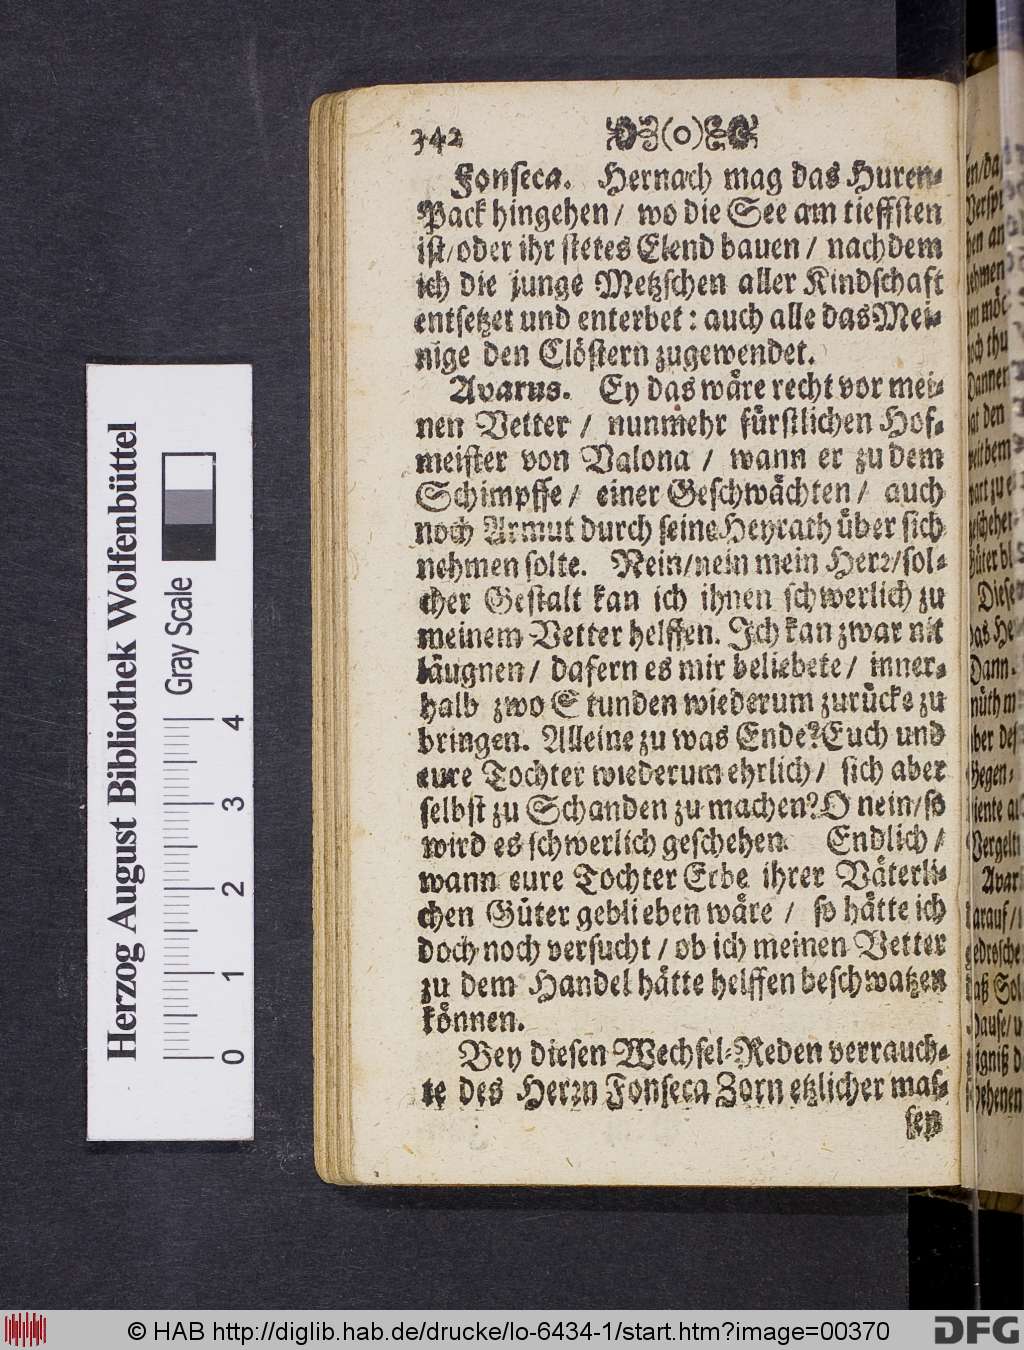 342 (o)
Fonseca. Hernach mag das Huren-
Pack hingehen / wo die See am tieffsten
ist / oder ihr stetes Elend bauen / nachdem
ich die junge Metzschen aller Kindschaft
entsetzet und enterbet : auch alle das Mei-
nige den Clöstern zugewendet.
Avarus. Ey das wäre recht vor mei-
nen Vetter / nunmehr fürstlichen Hof-
meister von Valona / wann er zu dem
Schimpffe / einer Geschwächten / auch
noch Armut durch seine Heyrath über sich
nehmen solte. Nein / nein mein Herr / sol-
cher Gestalt kan ich ihnen schwerlich zu
meinem Vetter helffen. Ich kan zwar nit
läugnen / dafern es mir beliebete / inner-
halb zwo Stunden wiederum zurücke zu
bringen. Alleine zu was Ende? Euch und
eure Tochter wiederum ehrlich / sich aber
selbst zu Schanden zu machen? O nein / so
wird es schwerlich geschehen. Endlich /
wann eure Tochter Erbe ihrer Väterli-
chen Güter geblieben wäre / so hätte ich
doch noch versucht / ob ich meinen Vetter
zu dem Handel hätte helffen beschwatzen
können.
Bey diesen Wechsel-Reden verrauch-
te des Herrn Fonseca Zorn etzlicher mas-
sen
Herzog August Bibliothek Wolfenbüttel
Gray Scale
0 1 2 3 4
© HAB http://diglib.hab.de/drucke/lo-6434-1/start.htm?image=00370
DFG